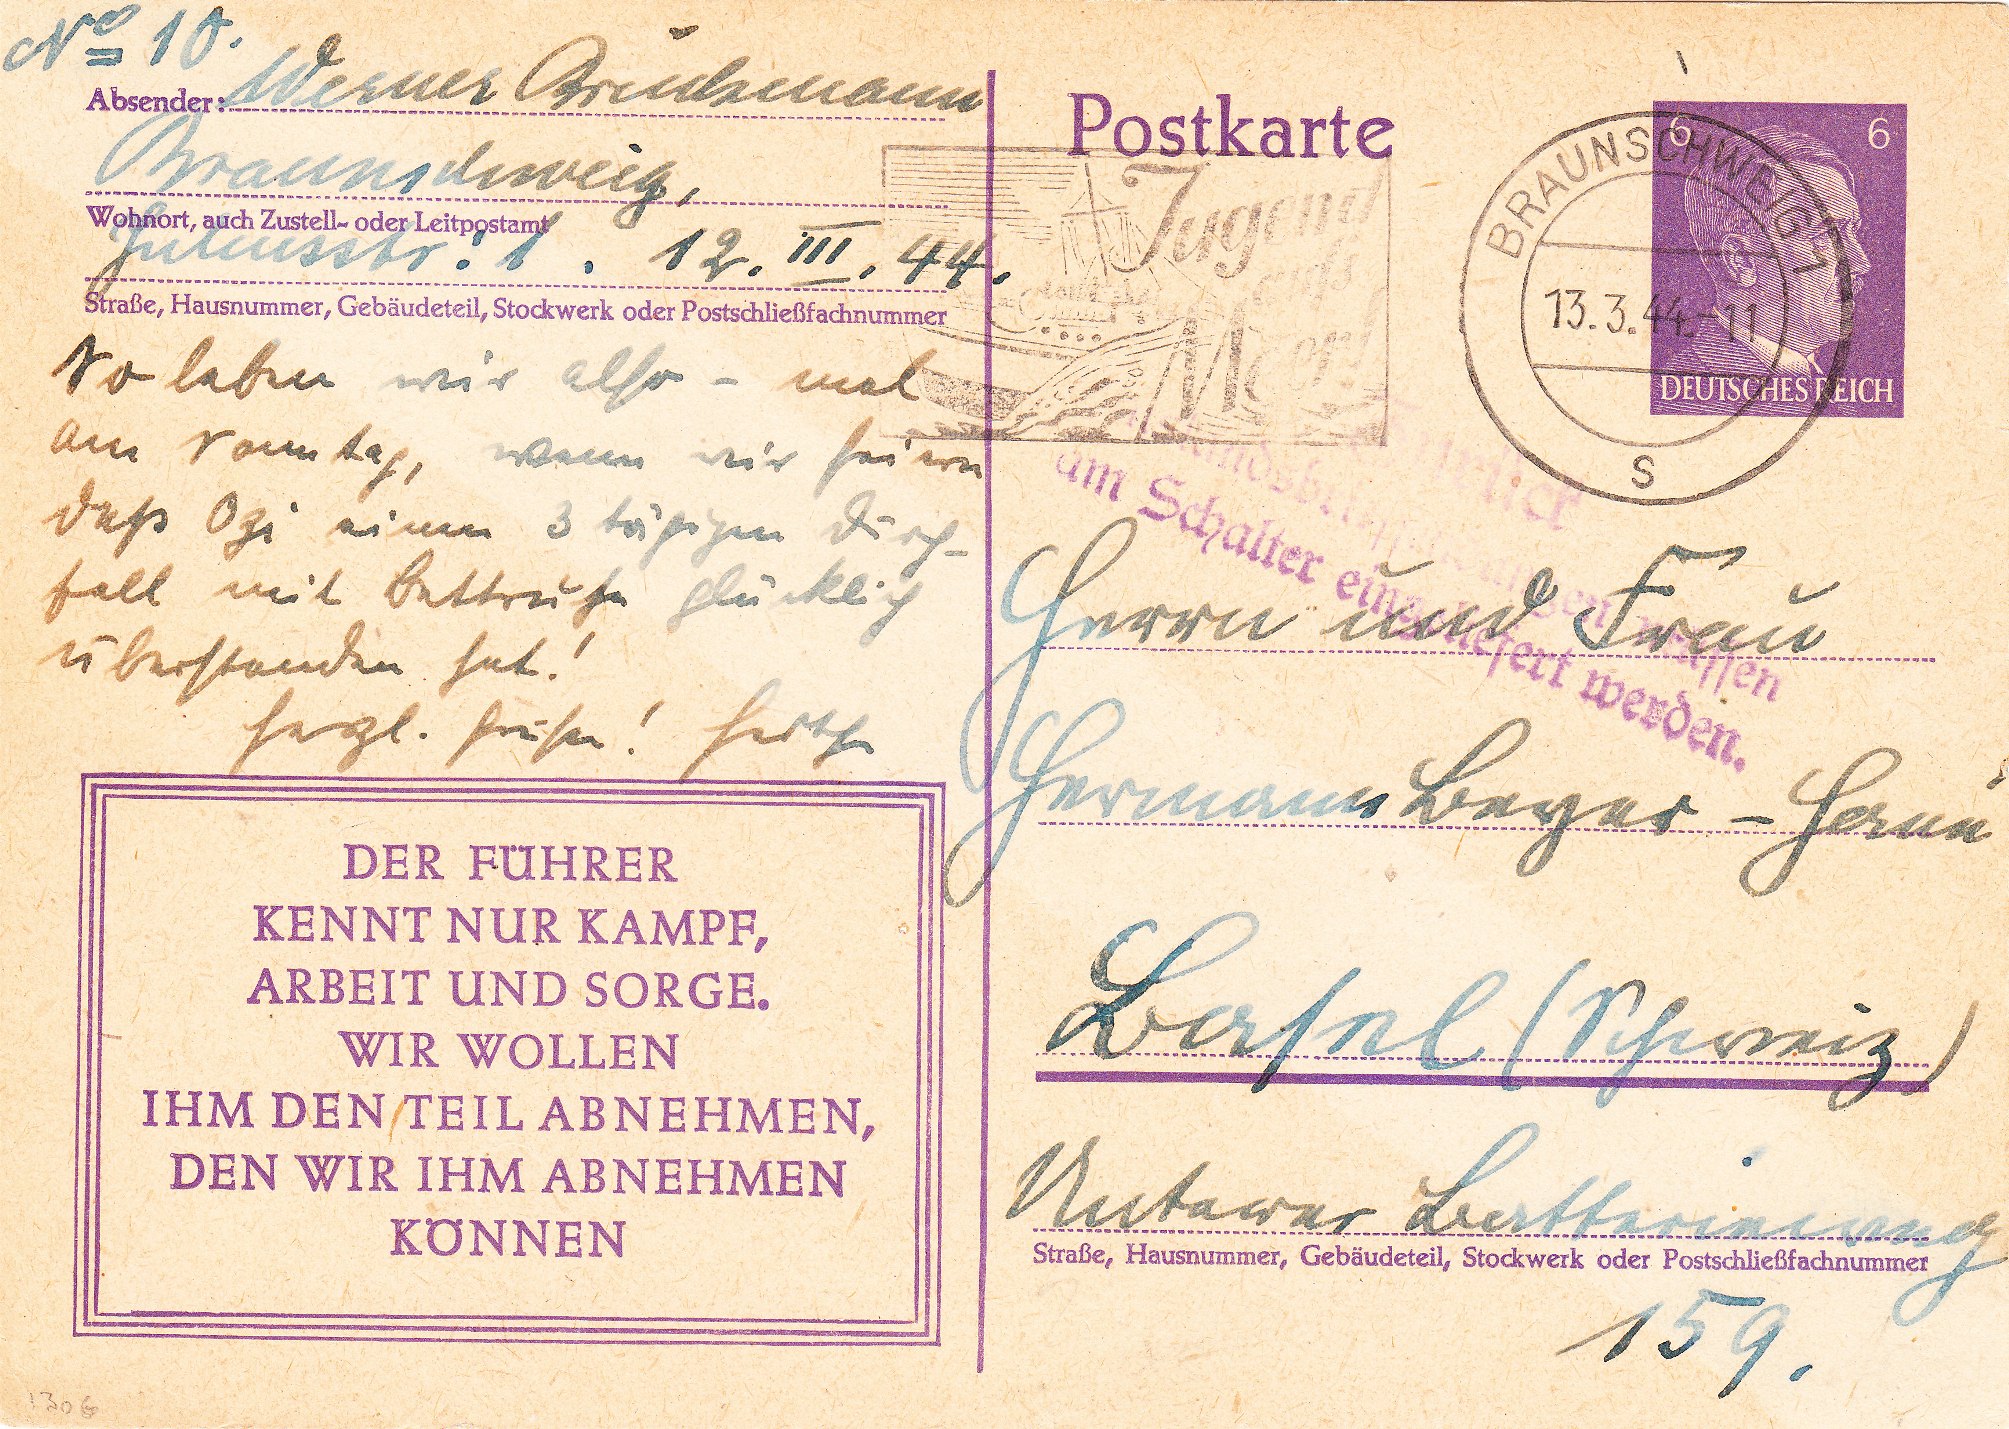 No 10.
Absender: Werner
Braunschweig,
Wohnort, auch Zustell- oder Leitpostamt
Juliusstr. 1. 12. III. 44.
Straße, Hausnummer, Gebäudeteil, Stockwerk oder Postschließfachnummer
So leben wir also - mal
am Sonntag, wenn wir feiern
daß Ozi einen 3 tägigen Durch-
fall mit Bettruhe glücklich
überstanden hat!
Herzl. Grüße!
DER FÜHRER
KENNT NUR KAMPF,
ARBEIT UND SORGE.
WIR WOLLEN
IHM DEN TEIL ABNEHMEN,
DEN WIR IHM ABNEHMEN
KÖNNEN
1306
Postkarte
Jugend
aufs
Meer!
6 6
DEUTSCHES REICH
BRAUNSCHWEIG 1
13.3.44.-11
s
müssen
am Schalter eingeliefert werden.
Herrn und Frau
Hermann Beyer -
Basel (Schweiz)
Unterer Batterieweg
Straße, Hausnummer, Gebäudeteil, Stockwerk oder Postschließfachnummer
159.